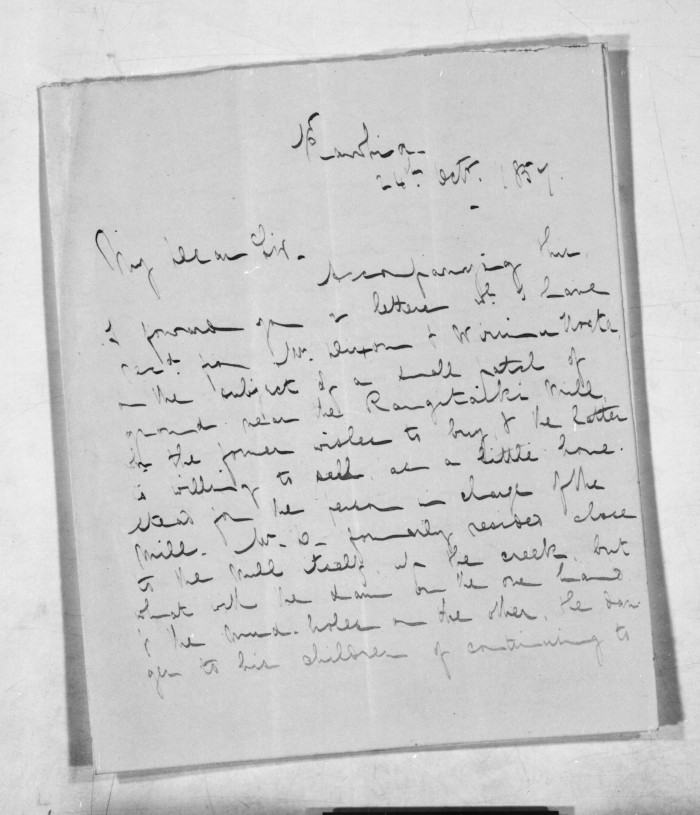 24th Octr. 1857.
My dear Sir.
Accompanying this
I forward you 2 letters wh. I have
recd. from Mr. &
on the subject of a small patch of
ground near the Rangitaiki Mill,
wh. the former wishes to buy, & the latter
is willing to sell, as a little home
stead for the person in charge of the
Mill. Mr. formerly resided close
to the Mill itself in the creek, but
what with the dam on the one hand
& the mud-holes on the other, the dan
ger to his children of continuing to